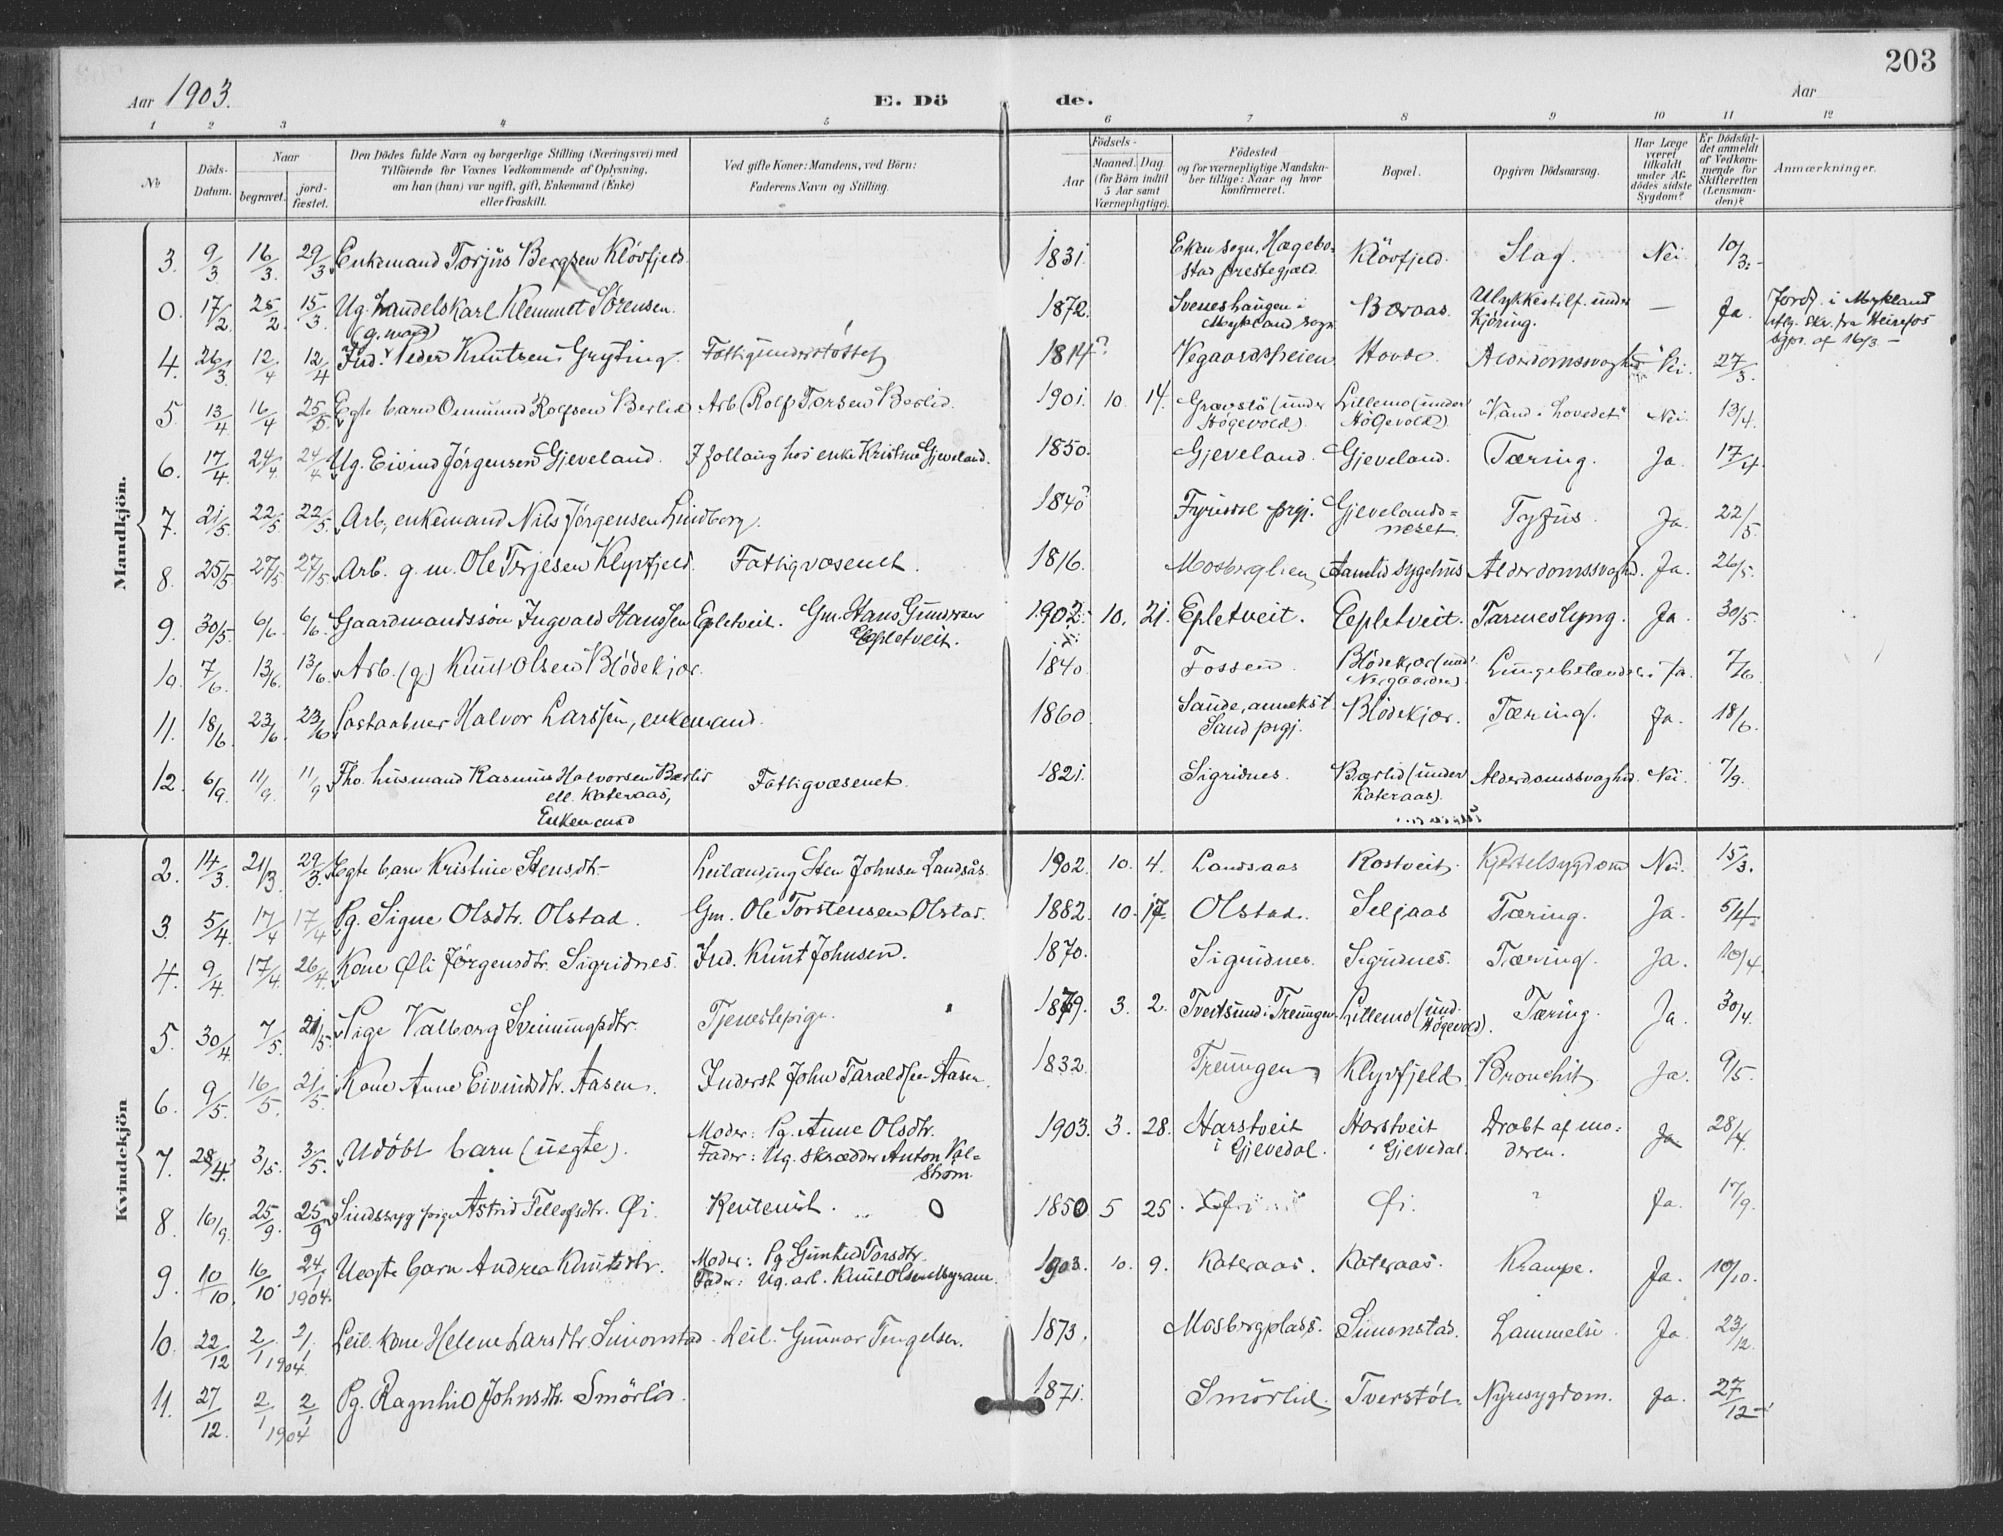 203
Aar 1903.
E. Dö de.
Aar
1 2 3 4 5 6 7 8 9 10 11 12
No
Döds-Datum.
Naar
begravet.
jord-fæstet.
Den Dödes fulde Navn og borgerlige Stilling (Næringsvei) med
Tilföiende for Voxnes Vedkommende af Oplysning,
om han (hun) var ugift, gift, Enkemand (Enke)
eller fraskilt.
Ved gifte Koner: Mandens, ved Börn:
Faderens Navn og Stilling.
Födsels-
Aar
Maaned. Dag.
(for Börn indtil
5 Aar samt
Værnepligtige).
Födested
og for værnepligtige Mandska-
ber tillige: Naar og hvor
konfirmeret.
Bopæl.
Opgiven Dödsaarsag.
Har Læge
været
tilkaldt
under Af-
dödes sidste
Sygdom?
Er Dödsfal-
det anmeldt
af Vedkom-
mende for
Skifteretten
(Lensman-
den)?
Anmærkninger.
Mandkjön.
3. 9/3 16/3 29/3 Enkemand Torjus Bergsen Klövfjeld. 1831. Eken sogn, Hægebo-
stad prestegjæld. Klövfjeld. Slag. Nei. 10/3.
0. 17/2 25/2 15/3 Ug. handelskarl Klemmet Sörensen. 1872. Sveneshaugen i
Mykland sogn Bæraas. Ulykkestilf. under
kjöring. — Ja. Jordf. i Mykland
iflg. skr. fra Heirefos
sgpr. af 16/3 —
4. 26/3 12/4 12/4 (g. mand)
Ind. Peder Knutsen Gryting. Fattigunderstöttet 1814? Vegaardsheien. Hovde. Alderdomssvaghed Nei. 27/3.
5. 13/4 16/4 25/5 Egte barn Osmund Rolfsen Berlid Arb. (Rolf Torsen Berlid. 1901. 10. 14. Gravstö (under
Högevold). Lillemo (under
Högevold) "Vand i hovedet" Nei. 13/4.
6. 17/4 24/4 24/4 Ug. Eivind Jörgensen Gjeveland. I follaug hos enke Kristine Gjeveland. 1850. Gjeveland. Gjeveland. Tæring. Ja. 17/4.
7. 21/5 22/5 22/5 Arb, enkemand Nils Jörgensen Lindborg. 1840? Fyrisdal prgj. Gjevelands-
neset. Tyfus. Ja. 22/5.
8. 25/5 27/5 27/5 Arb. g. m. Ole Terjesen Klyvfjeld. Fattigvæsenet. 1816. Mosberglien Aamlid sygehus Alderdomssvaghd. Ja. 26/5.
9. 30/5. 6/6. 6/6. Gaardmandssön Ingvald Hanssen Epletveit. Gm. Hans Gundersen
Epletveit. 1902. 10. 21. Epletveit. Epletveit. Tarmeslyng. Ja. 30/5.
10. 7/6. 13/6. 13/6. Arb. (g) Knut Olsen Blödekjær. 1840. Fossen. Blödekjær (und. Lungebetændelse. Ja. 7/6.
11. 18/6. 23/6. 23/6 Postaabner Halvor Larssen, enkemand. 1860. Sande, annekst
Sand prgj. Blödekjær. Tæring. Ja. 18/6.
12. 6/9. 11/9. 11/9 Fho. husmand Rasmus Halvorsen Bærlid
ell. Kateraas,
Enkemand Fattigvæsenet. 1821. Sigridnes. Bærlid (under
Kateraas). Alderdomssvaghd. Nei. 7/9.
Kvindekjön
2. 14/3. 21/3. 29/3. Egte barn Kristine Stensdtr. Leilænding Sten Johnsen Landsås. 1902. 10. 4. Landsaas Rostveit. Kjertelsygdom Nei. 15/3.
3. 5/4. 17/4 17/4 Pg. Signe Olsdtr. Olstad. Gm. Ole Torstensen Olstad. 1882. 10. 17. Olstad. Seljaas Tæring. Ja. 5/4.
4. 9/4. 17/4. 26/4. Kone Oli Jörgensdtr. Sigridnes. Ind. Knut Johnsen. 1870. Sigridnes. Sigridnes. Tæring. Ja. 10/4.
5. 30/4. 7/5. 21/5. Pige Valborg Sveinungsdtr. Tjenestepige. 1879. 3. 2. Tveitsund i Treungen. Lillemo (und.
Högevold). Tæring. Ja. 30/4.
6. 9/5. 16/5. 21/5. Kone Anne Eivindsdtr. Aasen. Inderst John Taraldsen Aasen. 1832. Treungen Klyvfjeld Bronchit. Ja. 9/5.
7. 28/4. 3/5. 3/5. Udöbt barn (uegte). Moder: Pg. Anne Olsdtr.
Fader: Ug. skrædder Anton Vol-
ström. 1903. 3. 28. Harstveit
i Gjevedal. Harstveit
i Gjevedal. Dræbt af mo-
deren. Ja 28/4.
8. 16/9. 25/9. 25/9 Sindssyg pige Astrid Tellefsdtr. Öi. Rentenist. 1850 5 25. Öi. ? Ja. 17/9.
9. 10/10. 16/10. 24/1 1904. Uegte barn Andrea Knutsdtr. Moder: Pg Gunhild Torsdtr.
Fader: Ug. arb. Knut Olsen 1903. 10. 9. Kateraas. Kateraas. Krampe. Ja. 10/10.
10. 22/12 2/1 1904 2/1. Leil. kone Helene Larsdtr. Simonstad. Leil. Gunnar Tengelsen. 1873. Mosbergplads. Simonstad. Lammelse. Ja. 23/12.
11. 27/12. 2/1 1904 2/1 Pg. Ragnhild Johnsdtr. Smörlid. 1871. Smörlid. Tverstöl. Nyresygdom. Ja. 27/12